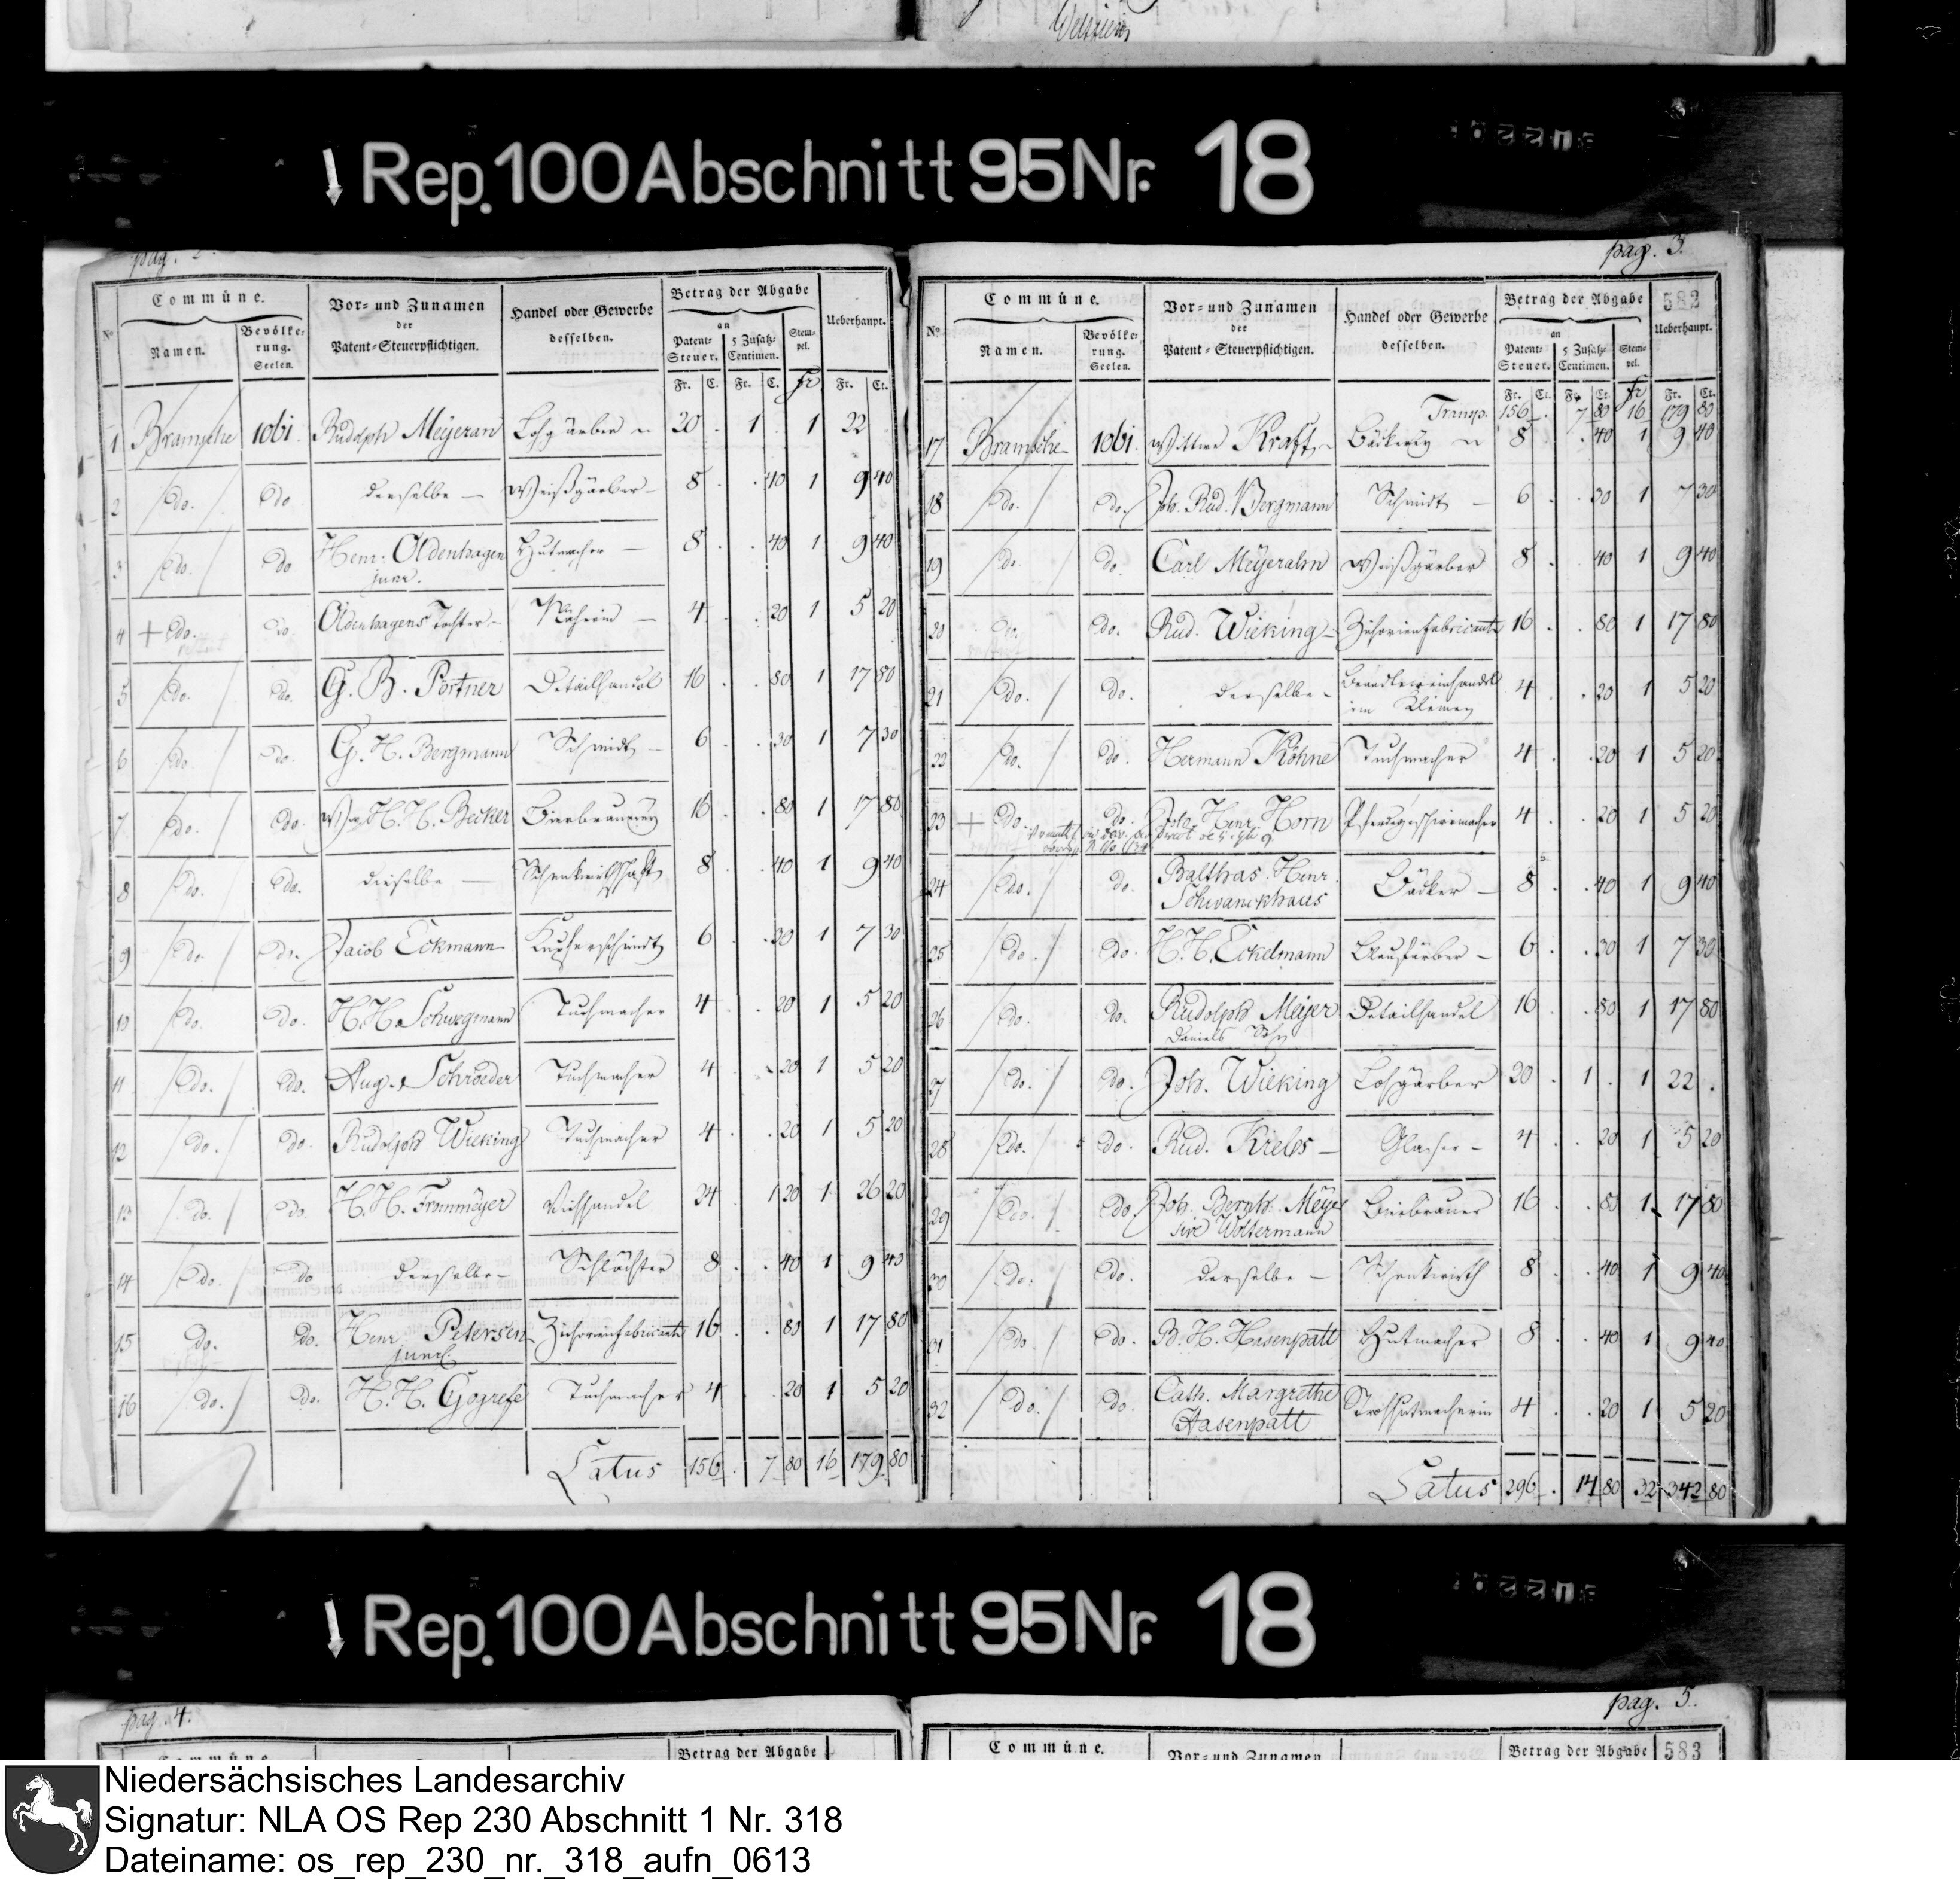 ↓ Rep. 100 Abschnitt 95 Nr. 18
pag. 2.
Commüne.
Vor- und Zunamen der Patent-Steuerpflichtigen.
Handel oder Gewerbe desselben.
Betrag der Abgabe
Ueberhaupt.
No
Namen.
Bevölke-rung. Seelen.
an Patent-Steuer.
5 Zusatz-Centimen.
Stem-pel.
Fr. C. Fr. C. Fr Fr. Ct.
1 Bramsche 1061. Rudolph Meyeran Lohgärber 20 . 1 . 1 22
2 do. do derselbe — Weißgärber 8 . . 40 1 9 40
3 do. do Henr: Oldenhagen junr. Hutmacher — 8 . . 40 1 9 40
4 + do. do. Oldenhagens Tochter — Näherin — 4 . . 20 1 5 20
5 do. do. G. B. Portner Detailhandel 16 . . 80 1 17 80
6 do. do. G. H. Bergmann Schmidt — 6 . . 30 1 7 30
7 do. do. Ww H. H. Becker Bierbrauerey 16 . . 80 1 17 80
8 do. do. dieselbe — Schenkwirthschaft 8 . . 40 1 9 40
9 do. do. Jacob Eckmann Kupferschmidt 6 . . 30 1 7 30
10 do. do. H. H. Schwegmann Tuchmacher 4 . . 20 1 5 20
11 do. do. Aug. Schroeder Tuchmacher 4 . . 20 1 5 20
12 do. do. Rudolph Wieking Tuchmacher 4 . . 20 1 5 20
13 do. do. H. H. Frommeyer Viehhandel 24 . 1 20 1 26 20
14 do. do derselbe — Schlächter 8 . . 40 1 9 40
15 do. do. Henr. Petersen junr. Zichorienfabricante 16 . . 80 1 17 80
16 do. do. H. H. Gogrefe Tuchmacher 4 . . 20 1 5 20
Latus 156 . 7 80 16 179 80
pag. 3.
582
Commüne.
Vor- und Zunamen der Patent-Steuerpflichtigen.
Handel oder Gewerbe desselben.
Betrag der Abgabe
Ueberhaupt.
No
Namen.
Bevölke-rung. Seelen.
an Patent-Steuer.
5 Zusatz-Centimen.
Stem-pel.
Fr. Ct. Fr. Ct. Fr Fr. Ct.
Transp. 156 . 7 80 16 179 80
17 Bramsche 1061. Wittwe Kraft Bäckerey 8 . . 40 1 9 40
18 do. do. Joh. Rud. Bergmann Schmidt — 6 . . 30 1 7 30
19 do. do. Carl Meyerahn Weißgärber 8 . . 40 1 9 40
20 do. do. Rud. Wieking — Zichorienfabricante 16 . . 80 1 17 80
21 do. do. derselbe — Brandteweinhandel im Kleinen 4 . . 20 1 5 20
22 do. do. Hermann Köhne Tuchmacher 4 . . 20 1 5 20
23 + do. do. Joh. Henr. Horn Pferdegeschirrmacher 4 . . 20 1 5 20
24 do. do. Balthas. Henr. Schwanckhaus Bäcker — 8 . . 40 1 9 40
25 do. do. H. H. Eckelmann Blaufärber — 6 . . 30 1 7 30
26 do. do. Rudolph Meijer Daniels Sohn Detailhandel 16 . . 80 1 17 80
27 do. do. Joh. Wieking Lohgärber 20 . 1 . 1 22 .
28 do. do. Rud. Krebs — Glaser — 4 . . 20 1 5 20
29 do. do. Joh. Bernh. Meyer sive Woltermann Bierbrauer 16 . . 80 1 17 80
30 do. do. derselbe — Schenkwirth 8 . . 40 1 9 40
31 do. do. B. H. Hasenpatt Hutmacher 8 . . 40 1 9 40
32 do. do. Cath. Margrethe Hasenpatt Strohhutmacherin 4 . . 20 1 5 20
Latus 296 . 14 80 32 342 80
↓ Rep. 100 Abschnitt 95 Nr. 18
pag. 4.
Commüne
Betrag der Abgabe
pag. 5.
Commüne.
Vor- und Zunamen
Betrag der Abgabe
583
Niedersächsisches Landesarchiv
Signatur: NLA OS Rep 230 Abschnitt 1 Nr. 318
Dateiname: os_rep_230_nr._318_aufn_0613